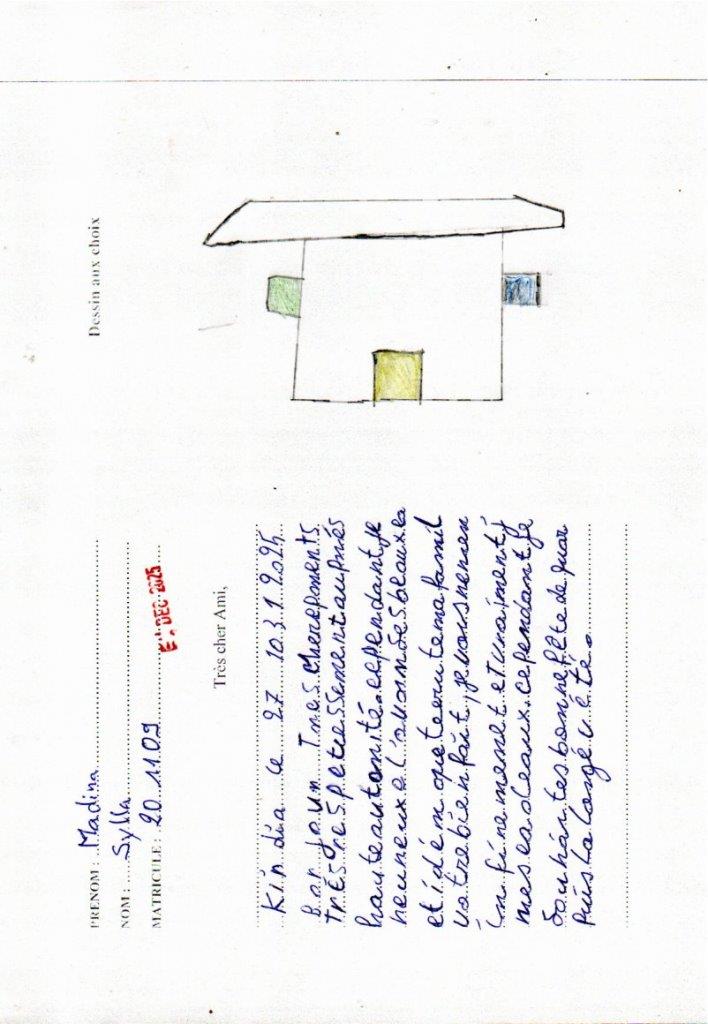 PRENOM : Madina
NOM : Sylla
MATRICULE : 20 11 09
DEC 2025
Très cher Ami,
Kin dia le 27 10 3 1 2025
Bon Jour Tres cherepments
très respetuessement auprés
haute autorité. cependant je
heureuxe l'avoir des beaux ca
et idém opeteeru tema famil
votre bien fait, je vous remer
infinement et vraiment j
mes cadeaux. cependant je
Souhaites bonne fête de quar
Puis la longé v eté.
Dessin aux choix